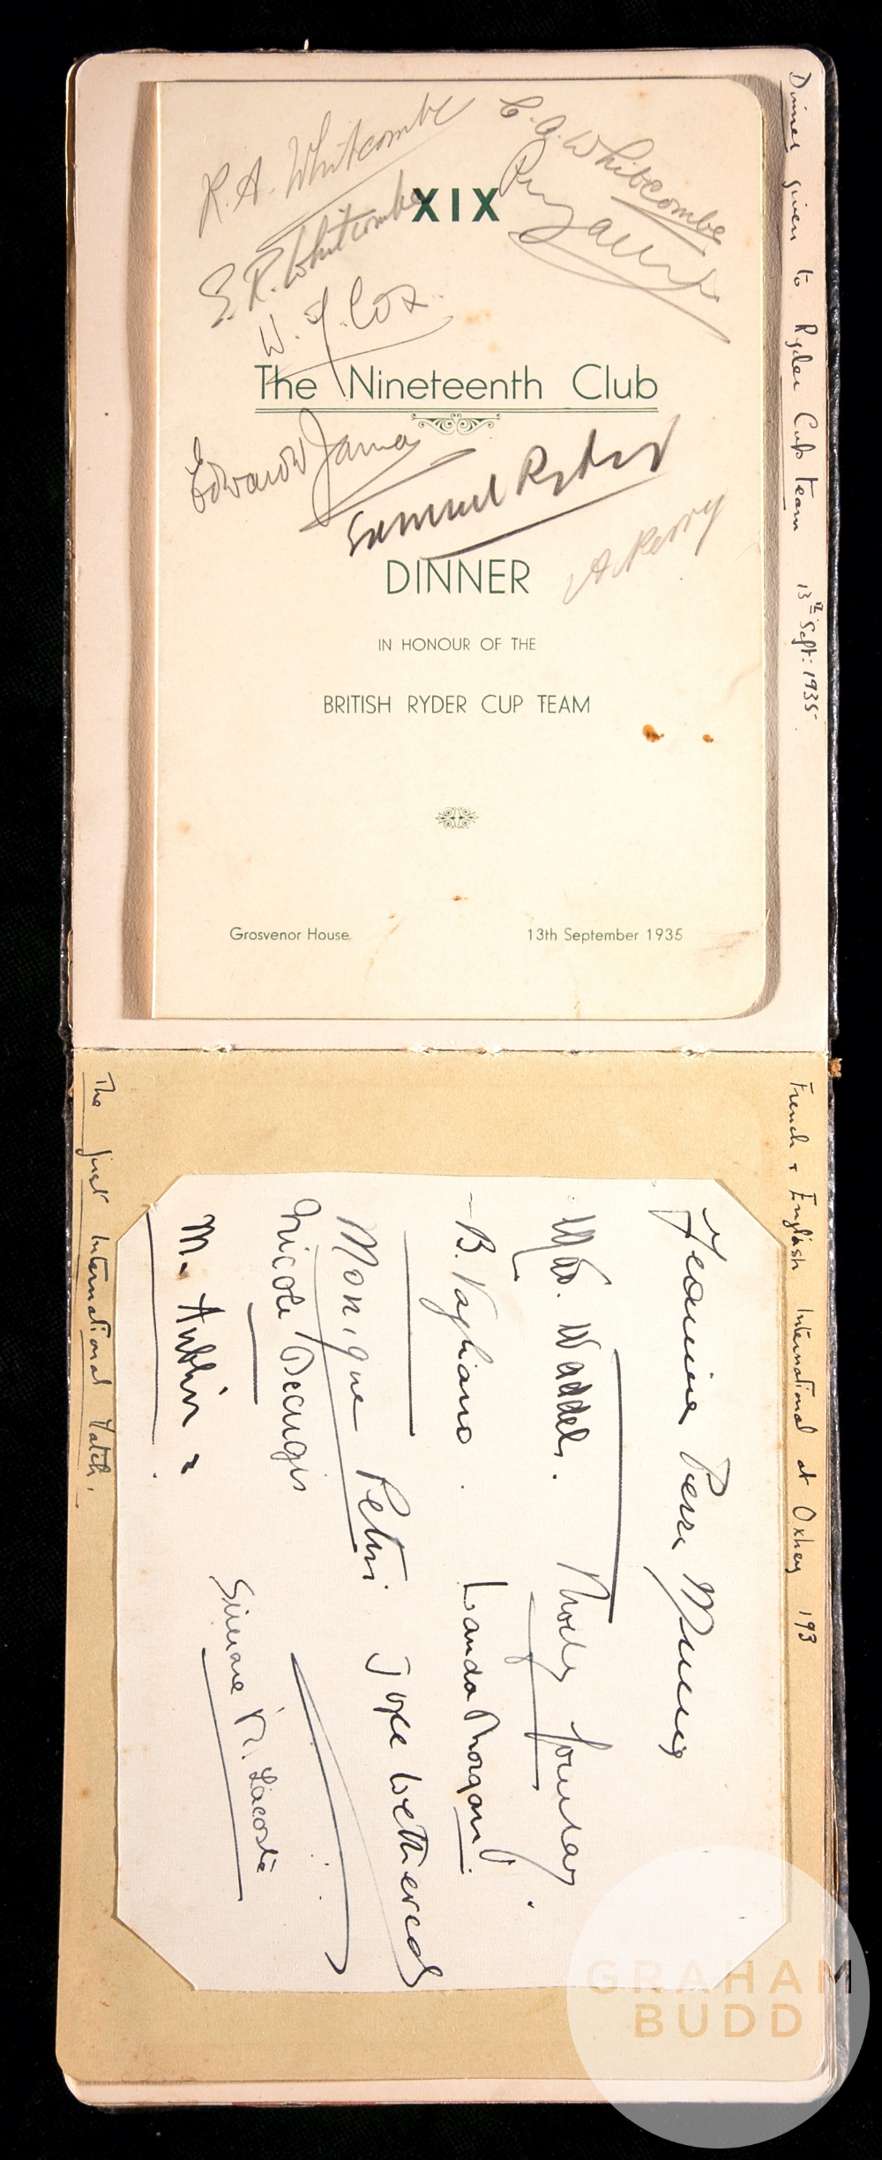 Dinner given to Ryder Cup team 13th Sept: 1935-
R. A. Whitcombe
C. A. Whitcombe
XIX
E. R. Whitcombe
Percy Alliss
W. J. Cox.
The Nineteenth Club
Edward Jarman
Samuel Ryder
A Perry
DINNER
IN HONOUR OF THE
BRITISH RYDER CUP TEAM
Grosvenor House.
13th September 1935
French & English International at Oxhey 193
Jeannine
Molly Gourlay.
B. Vagliano.
Wanda Morgan.
Monique
Joyce Wethered
Nicole Decugis
Simone R. Lacoste
M. Aubin
The first International Match.
GRAHAM
BUDD